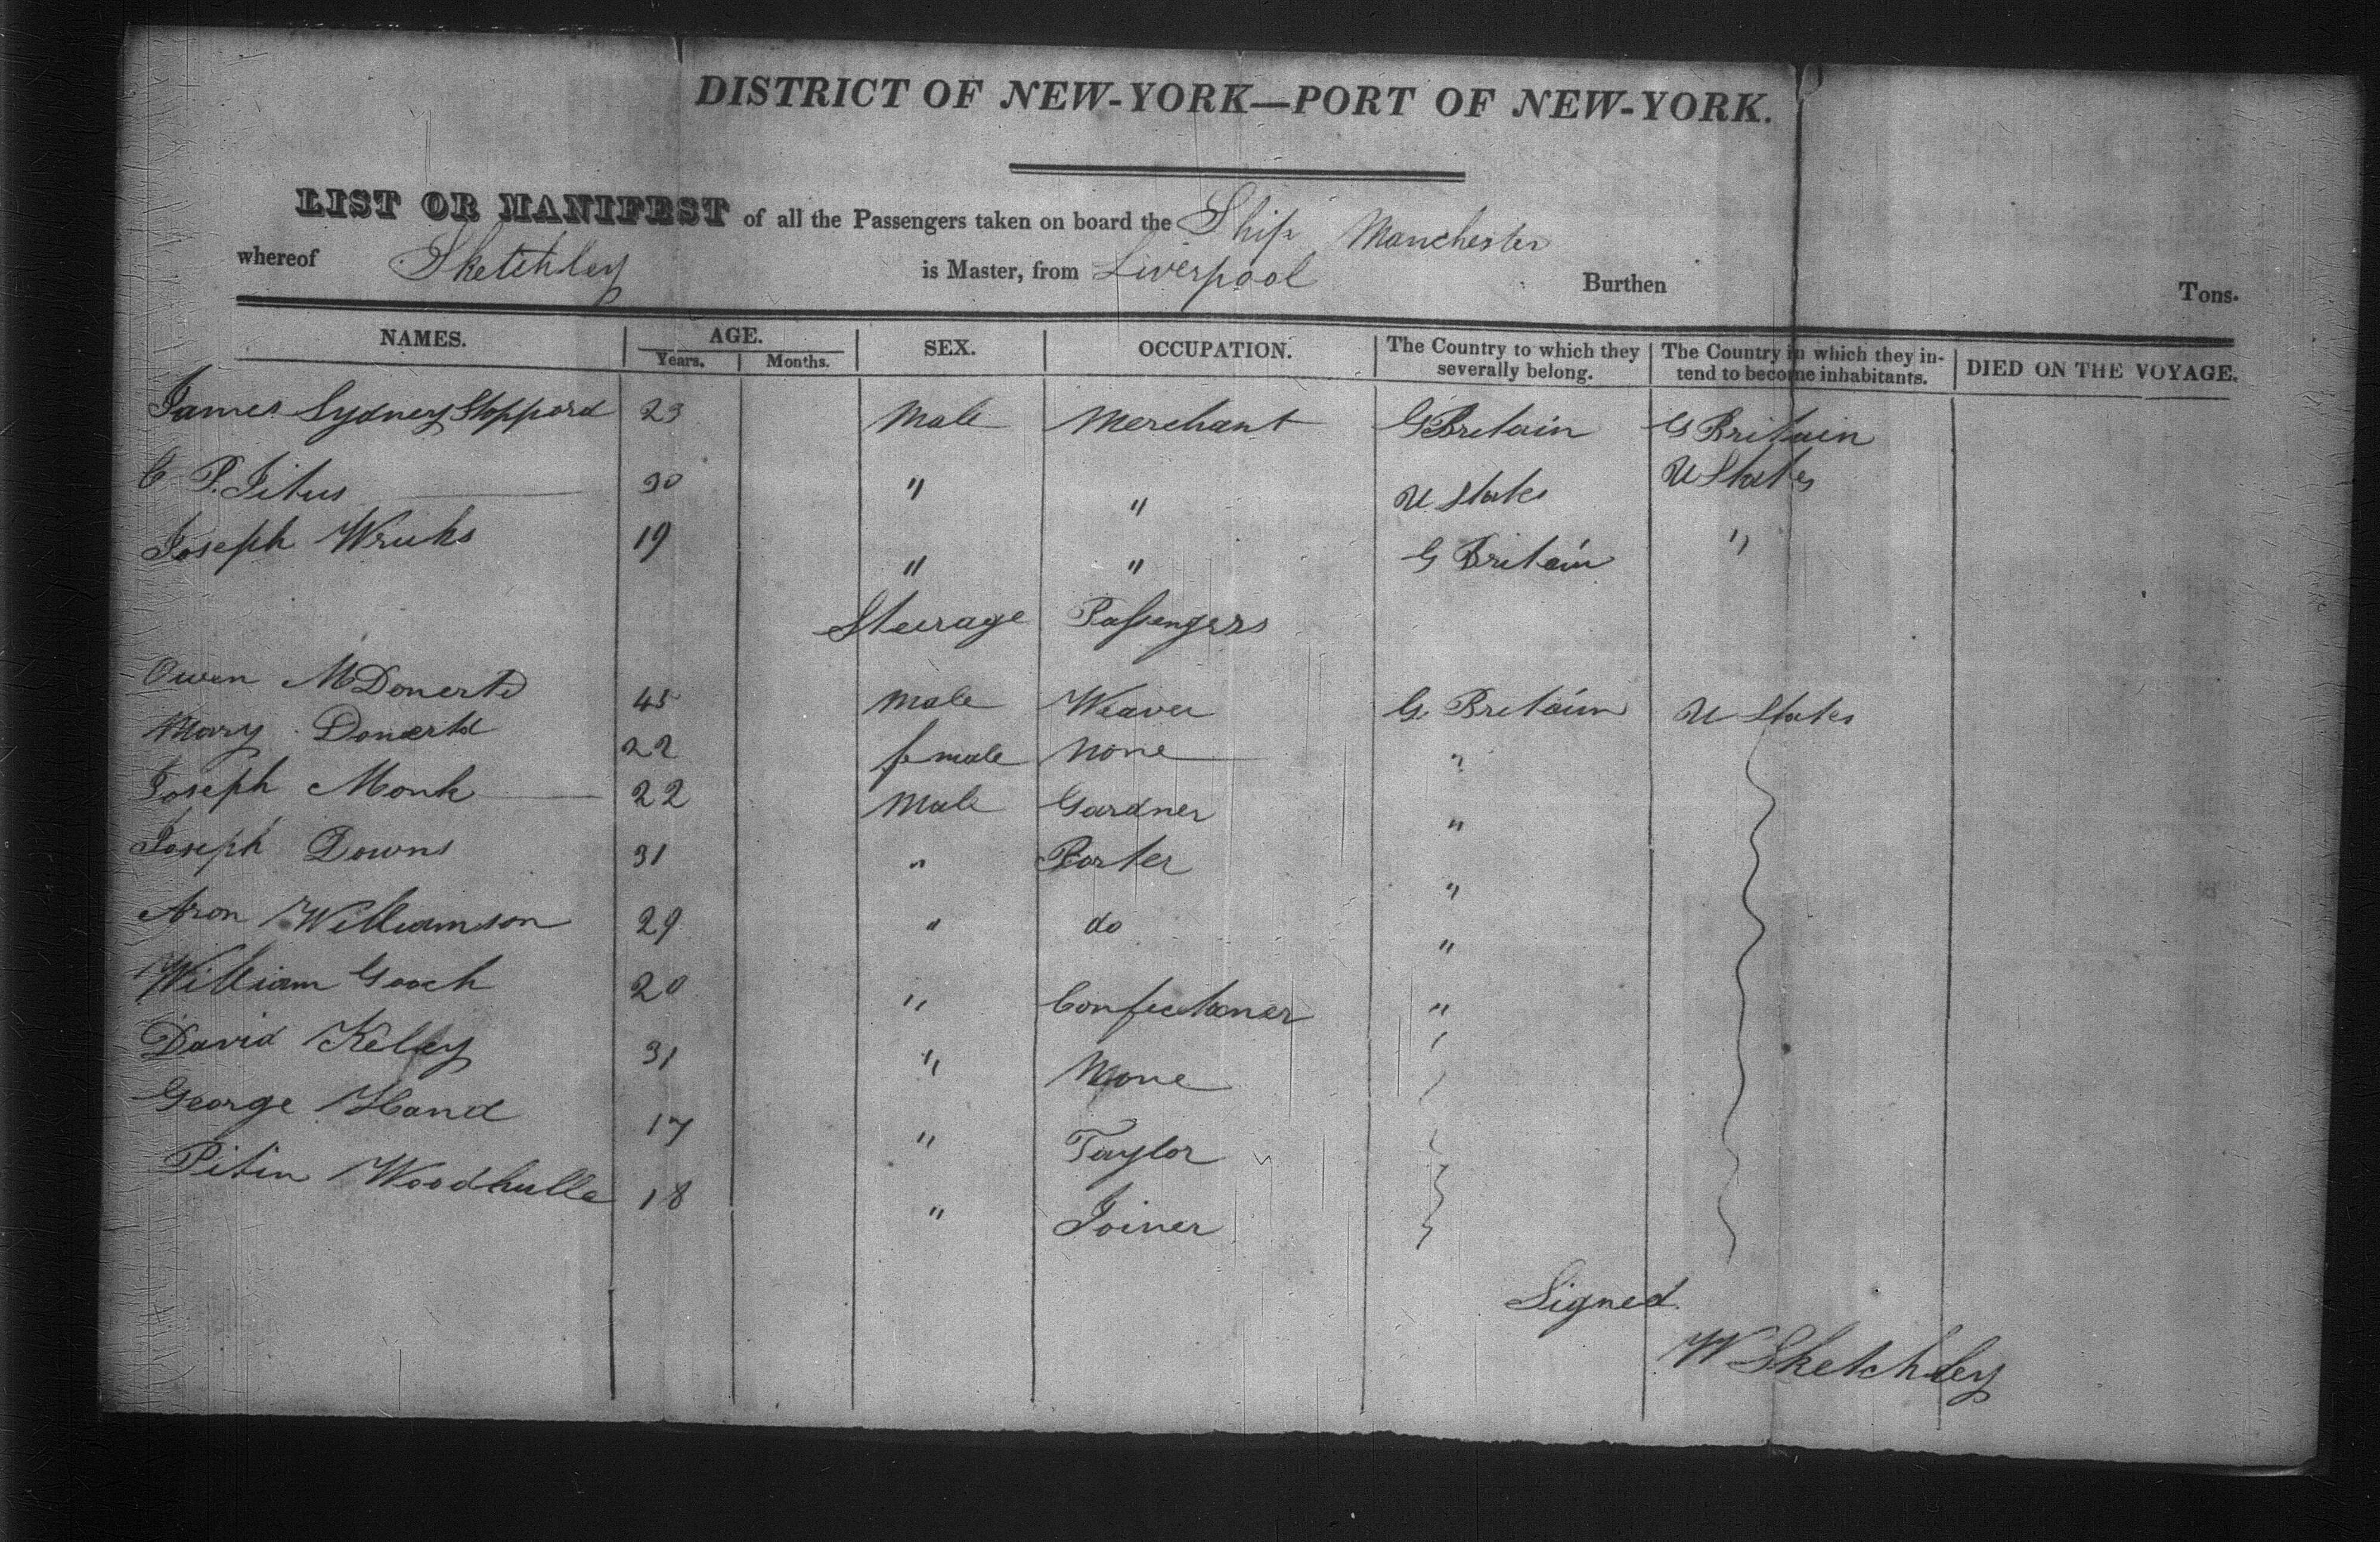 DISTRICT OF NEW-YORK—PORT OF NEW-YORK.
LIST OR MANIFEST of all the Passengers taken on board the Ship Manchester
whereof Sketchley is Master, from Liverpool Burthen Tons.
NAMES. AGE. Years. Months. SEX. OCCUPATION. The Country to which they severally belong. The Country in which they intend to become inhabitants. DIED ON THE VOYAGE.
James Sydney Stoppord 23 Male Merchant G Britain G Britain
C P. Titus 30 " " U States U States
Joseph 19 " " G Britain "
Steerage Passengers
Owen 45 Male Weaver G. Britain U States
Mary 22 female None "
Joseph Monk 22 Male Gardner "
Joseph Downs 31 " Porter "
Aron Williamson 29 " do "
William Gooch 20 " Confectioner "
David Kelley 31 " None
George Hand 17 " Taylor
Woodhulle 18 " Joiner
Signed
W Sketchley